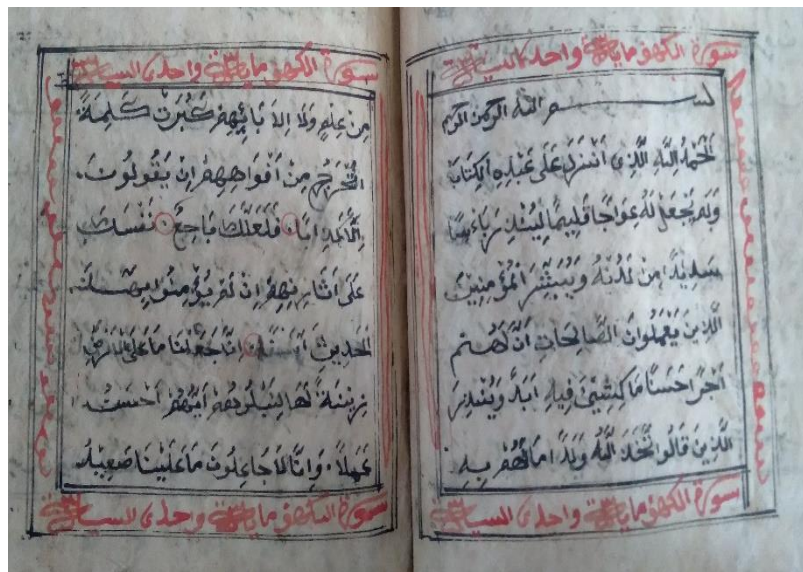 سورة الكهف ماية واحدى
بســـم الله الرحمن الرحيم
اَلْحَمْدُ لِلَّهِ الَّذِى اَنْزَلَ عَلَى عَبْدِهِ الْكِتَابَ
وَلَمْ يَجْعَلْ لَهُ عِوَاجَا قَلِيمًا لِيُنْذِرَ بَاءْسًا
سَدِيْدًا مِنْ لَدُنْهُ وَيُبَشِّرَ الْمُؤْمِنِينَ
الَّذِينَ يَعْمَلُونَ الصَّالِحَاتِ اَنَّ لَهُمْ
اَجْرًا حَسَنًا مَاكِثِينَ فِيهِ اَبَدًا وَيُنْذِرَ
الَّذِينَ قَالُوا تَّخَذَ اللَّهُ وَلَدًا مَا لَهُمْ بِهِ
سورة الكهف ماية واحدى
سورة الكهف ماية واحدى
مِنْ عِلْمٍ وَلَا اِلاَ بَائِهِمْ كَبُرَتْ كَلِمَةً
تَخْرُجُ مِنْ اَفْوَاهِهِمْ اِنْ يَقُولُونَ
اِلَّا كَذِبًا فَلَعَلَّكَ بَاخِعٌ نَفْسَكَ
عَلَى اَثَارِهِمْ اِنْ لَمْ يُؤْمِنُوا بِهَــٰذَ
الْحَدِيثِ اَسَفًا اِنَّا جَعَلْنَا مَا عَلَى الْاَرْضِ
زِيْنَةً لَهَا لِنَبْلُوَهُمْ اَيُّهُمْ اَحْسَنُ
عَمَلاً وَاِنَّا لَجَاعِلُونَ مَا عَلَيْنَا صَعِيْدً
سورة الكهف ماية واحدى